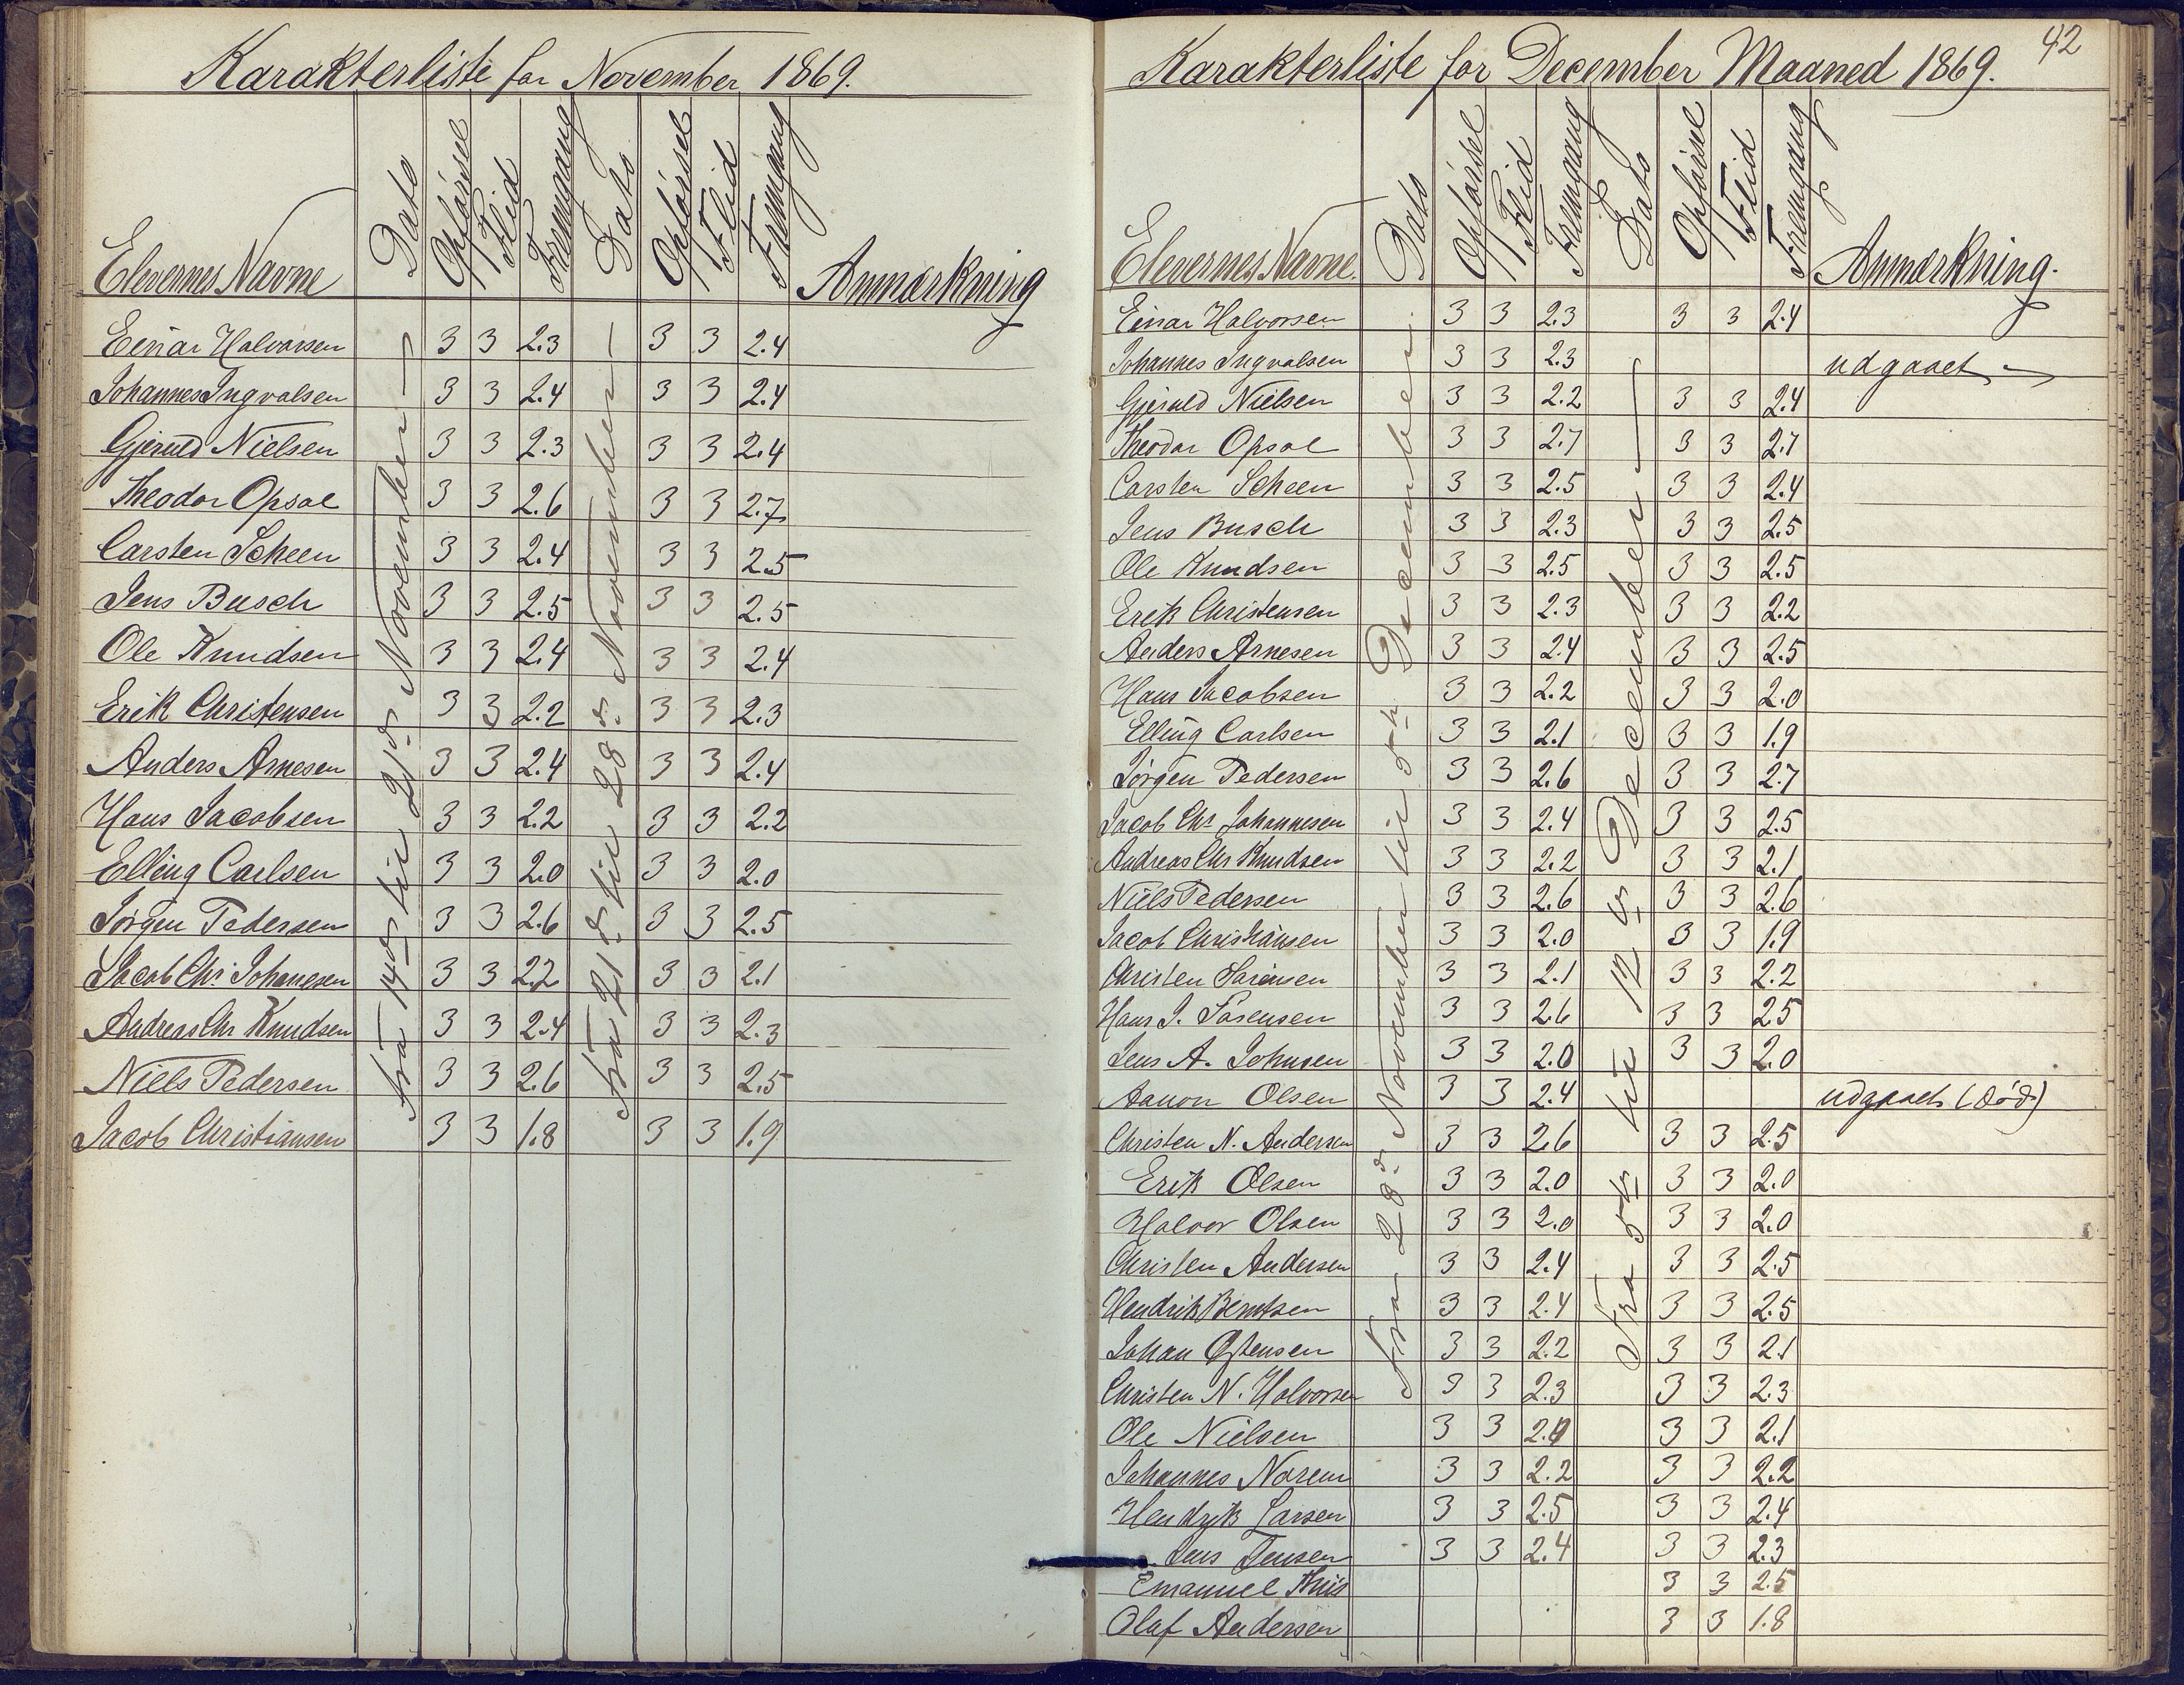 Karakterliste for November 1869.
Elevernes Navne Dato Opførsel Flid Fremgang Dato Opførsel Flid Fremgang Anmærkning
fra 14de til 21de November
fra 21de til 28de November
Einar Halvorsen 3 3 2.3 3 3 2.4
Johannes Ingvalsen 3 3 2.4 3 3 2.4
Gjeruld Nielsen 3 3 2.3 3 3 2.4
Theodor Opsal 3 3 2.6 3 3 2.7
Carsten Scheen 3 3 2.4 3 3 2.5
Jens Busch 3 3 2.5 3 3 2.5
Ole Knudsen 3 3 2.4 3 3 2.4
Erik Christensen 3 3 2.2 3 3 2.3
Anders Arnesen 3 3 2.4 3 3 2.4
Hans Jacobsen 3 3 2.2 3 3 2.2
Elling Carlsen 3 3 2.0 3 3 2.0
Jørgen Pedersen 3 3 2.6 3 3 2.5
Jacob Chr Johannesen 3 3 2.2 3 3 2.1
Andreas Chr Knudsen 3 3 2.4 3 3 2.3
Niels Pedersen 3 3 2.6 3 3 2.5
Jacob Christiansen 3 3 1.8 3 3 1.9
42
Karakterliste for December Maaned 1869.
Elevernes Navne. Dato Opførsel Flid Fremgang Dato Opførsel Flid Fremgang Anmærkning.
Fra 28de November til 5te December.
Fra 5te til 12te December
Einar Halvorsen 3 3 2.3 3 3 2.4
Johannes Ingvalsen 3 3 2.3 udgaaet
Gjeruld Nielsen 3 3 2.2 3 3 2.4
Theodor Opsal 3 3 2.7 3 3 2.7
Carsten Scheen 3 3 2.5 3 3 2.4
Jens Busch 3 3 2.3 3 3 2.5
Ole Knudsen 3 3 2.5 3 3 2.5
Erik Christensen 3 3 2.3 3 3 2.2
Anders Arnesen 3 3 2.4 3 3 2.5
Hans Jacobsen 3 3 2.2 3 3 2.0
Elling Carlsen 3 3 2.1 3 3 1.9
Jørgen Pedersen 3 3 2.6 3 3 2.7
Jacob Chr Johannesen 3 3 2.4 3 3 2.5
Andreas Chr Knudsen 3 3 2.2 3 3 2.1
Niels Pedersen 3 3 2.6 3 3 2.6
Jacob Christiansen 3 3 2.0 3 3 1.9
Christen Sørensen 3 3 2.1 3 3 2.2
Hans J. Sørensen 3 3 2.6 3 3 2.5
Jens A. Johnsen 3 3 2.0 3 3 2.0
Aanon Olsen 3 3 2.4 udgaaet (død)
Christen N. Andersen 3 3 2.6 3 3 2.5
Erik Olsen 3 3 2.0 3 3 2.0
Halvor Olsen 3 3 2.0 3 3 2.0
Christen Andersen 3 3 2.4 3 3 2.5
Hendrik Berntsen 3 3 2.4 3 3 2.5
Johan Østensen 3 3 2.2 3 3 2.1
Christen N. Halvorsen 3 3 2.3 3 3 2.3
Ole Nielsen 3 3 3 3 2.1
Johannes Norem 3 3 2.2 3 3 2.2
Hendrik Larsen 3 3 2.5 3 3 2.4
Jens Jensen 3 3 2.4 3 3 2.3
Emanuel 3 3 2.5
Olaf Andersen 3 3 1.8